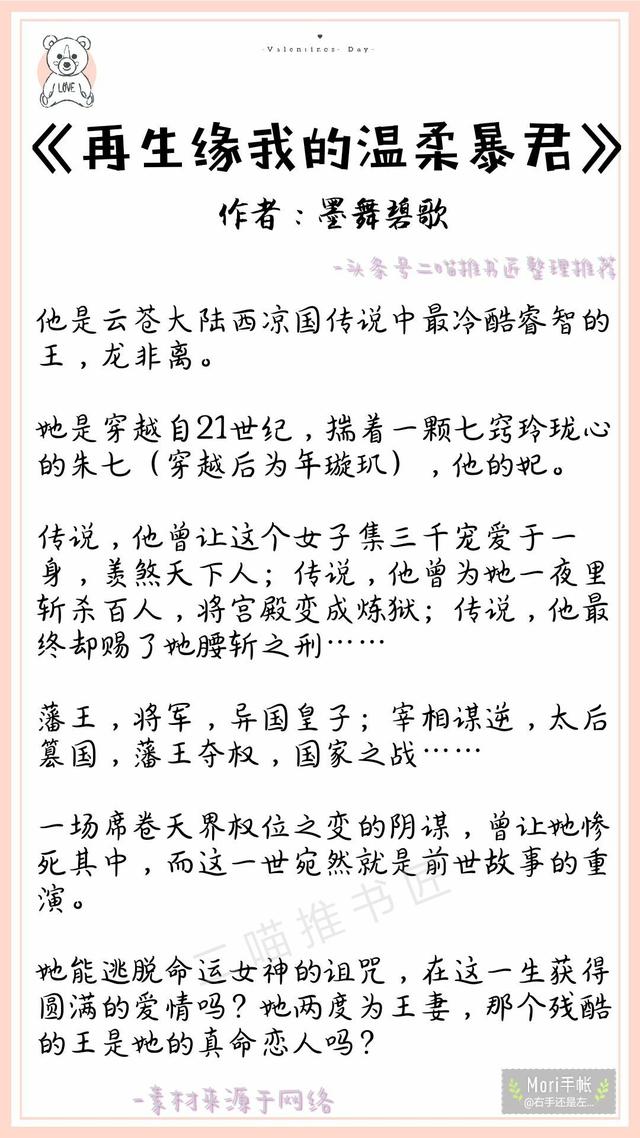 ·Valentines Day·
LOVE
《再生缘我的温柔暴君》
作者：墨舞碧歌
-头条号二喵推书匠整理推荐
他是云苍大陆西凉国传说中最冷酷睿智的
王，龙非离。
她是穿越自21世纪，揣着一颗七窍玲珑心
的朱七（穿越后为年璇玑），他的妃。
传说，他曾让这个女子集三千宠爱于一
身，羡煞天下人；传说，他曾为她一夜里
斩杀百人，将宫殿变成炼狱；传说，他最
终却赐了她腰斩之刑……
藩王，将军，异国皇子；宰相谋逆，太后
篡国，藩王夺权，国家之战……
一场席卷天界权位之变的阴谋，曾让她惨
死其中，而这一世宛然就是前世故事的重
演。
二喵推书匠
她能逃脱命运女神的诅咒，在这一生获得
圆满的爱情吗？她两度为王妻，那个残酷
的王是她的真命恋人吗？
-素材来源于网络
Mori手帐
@右手还是左...